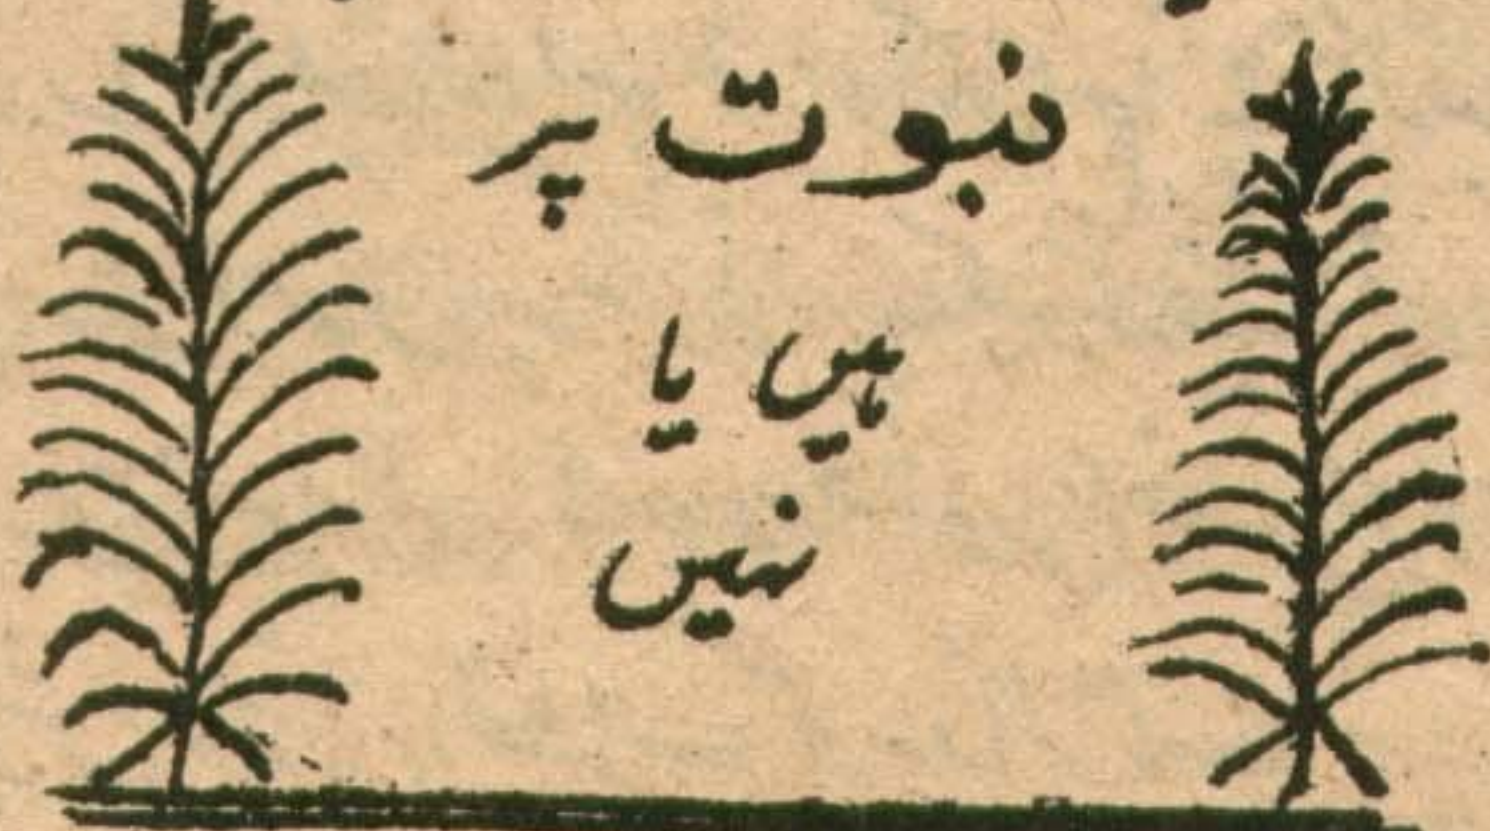 نبوت پر
ہیں یا
نہیں